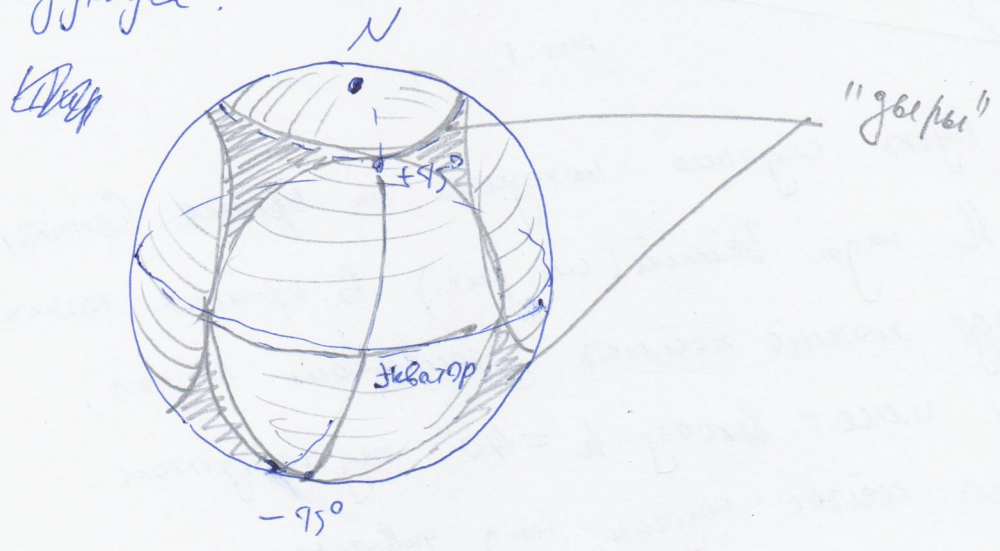 N
"дыры"
+45°
Экватор
- 45°